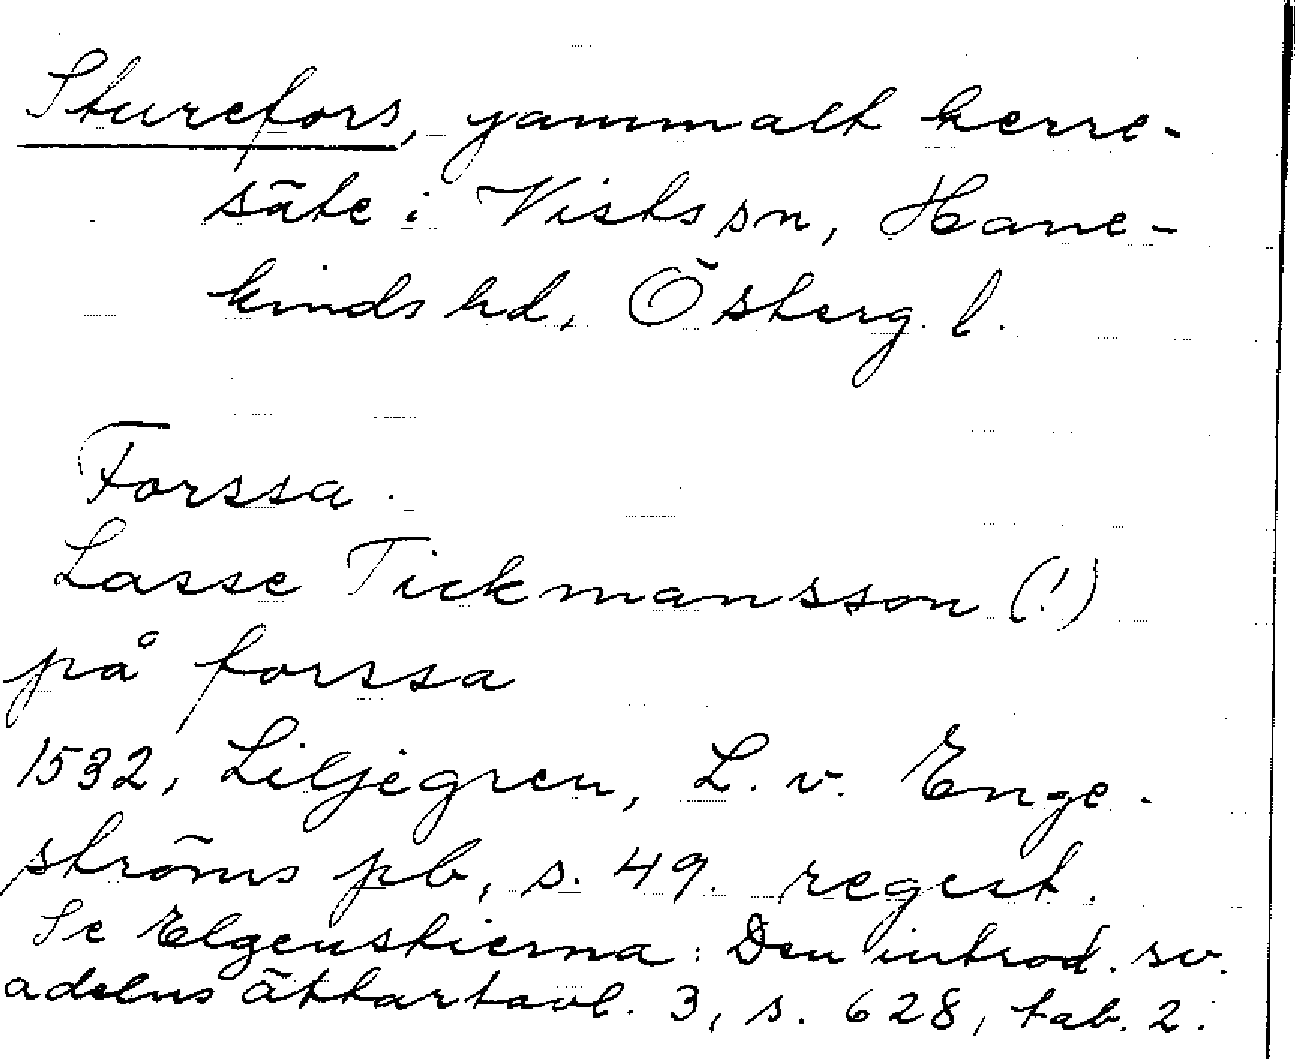 Sturefors, gammalt herre-
säte i Vists sn, Hane-
kinds hd, Österg. l.
Forssa.
Lasse Tickmansson (!)
på forssa
1532, Liljegren, L. v. Enge-
ströms pb, s. 49. regest.
Se Elgenstierna: Den introd. sv.
adelns ättartavl. 3, s. 628, tab. 2.